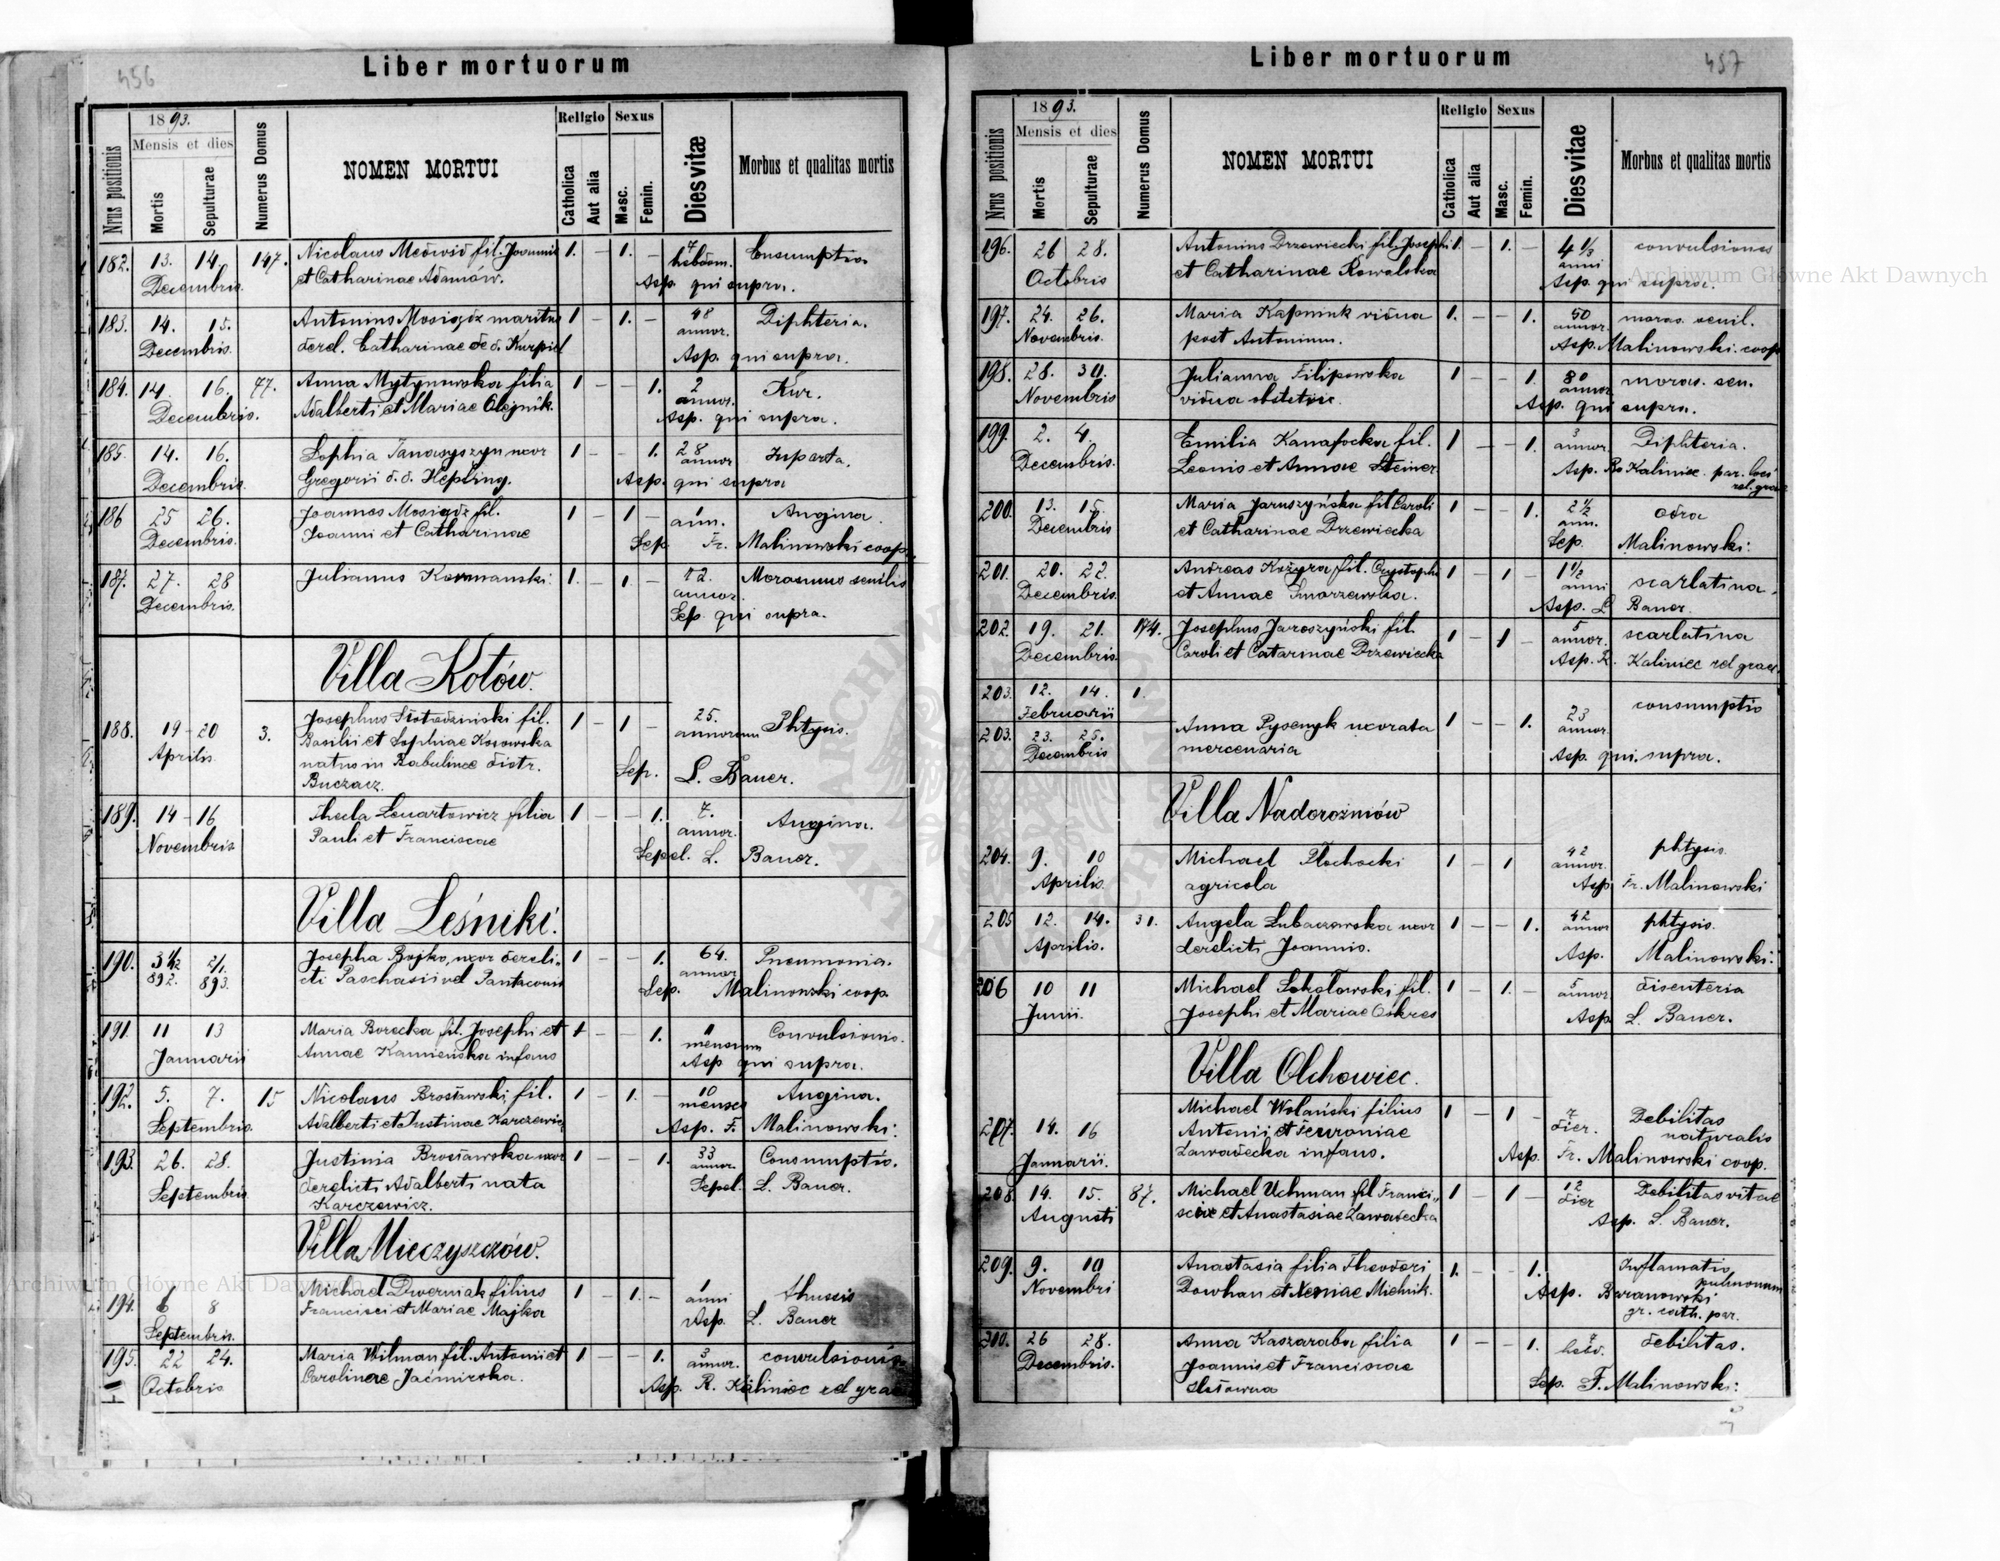 456
Liber mortuorum
Nrus positionis
1893.
Mensis et dies
Mortis
Sepulturae
Numerus Domus
NOMEN MORTUI
Religio
Catholica
Aut alia
Sexus
Masc.
Femin.
Dies vitæ
Morbus et qualitas mortis
182. 13. 14. 147. Nicolaus Medwid fil. Joannis 1. – 1. – 7 Consumptio
Decembris. et Catharinae Adamów. hebdom.
Asp. qui supra.
183. 14. 15. Antonius Mosiądz maritus 1 – 1. – 48 Diphteria.
Decembris. derel. Catharinae de d. Kurpiel annor.
Asp. qui supra.
184. 14. 16. 77. Anna Mytynowska filia 1 – – 1. 2 Kur.
Decembris. Adalberti et Mariae Olejnik. annor.
Asp. qui supra.
185. 14. 16. Sophia Tanasyszyn uxor 1 – – 1. 28
Decembris. Gregorii d. d. Hepting. annor
Asp. qui supra
186 25 26. Joannes Mosiądz fil. 1 – 1 – 1 Angina.
Decembris. Joanni et Catharinae ann.
Sep. Fr. Malinowski coop.
187. 27. 28 Julianus Kormanski. 1. – 1. – 72. Morasmus senilis
Decembris. annor.
Sep. qui supra.
Villa Kotów.
188. 19 – 20 3. Josephus fil. 1 – 1 – 25. Phtysis.
Aprilis Basilii et Sophiae Kosowska annorum
natus in Babulince distr.
Buczacz.
Sep. L. Bauer.
189. 14 – 16 Thecla Lewartowicz filia 1 – – 1. 7. Angina.
Novembris Pauli et Franciscae annor.
Sepel. L. Bauer.
Villa Leśniki.
190. 31/12 2/1. Josepha Bojko, uxor dereli- 1 – – 1. 64. Pneumonia.
892. 893. cti Paschasii vel Pantaconis annor
Sep. Malinowski coop.
191. 11 13 Maria Borecka fil. Josephi et 1 – – 1. 11 Convulsionis.
Januarii Annae Kamieńska infans mensium
Asp. qui supra.
192. 5. 7. 15 Nicolaus Brosławski fil. 1 – 1. – 10 Angina.
Septembris. Adalberti et Justinae Karczewicz menses
Asp. F. Malinowski.
193. 26. 28. Justinia Brosławska uxor 1 – – 1. 33 Consumptio.
Septembris derelicti Adalberti nata annor.
Karczewicz. Sepel. L. Bauer.
Villa Mieczyszczów.
194. 6 8 Michael Dwerniak filius 1 – 1. – 1 thussis
Septembris. Francisci et Mariae Majka anni
Asp. L. Bauer
195. 22 24. Maria Wilman fil. Antoni et 1 – – 1. 3 convulsionis
Octobris Carolinae Jaćmirska. annor.
Asp. R. Kaliniec rel grae
457
Liber mortuorum
Nrus positionis
1893.
Mensis et dies
Mortis
Sepulturae
Numerus Domus
NOMEN MORTUI
Religio
Catholica
Aut alia
Sexus
Masc.
Femin.
Dies vitae
Morbus et qualitas mortis
196. 26 28. Antonius Drzewiecki fil. Josephi 1. – 1. – 4 1/3 convulsiones
Octobris et Catharinae Kowalska anni
Asp. qui supra.
197. 24. 26. Maria Kapniuk vidua 1. – – 1. 50 moras. senil.
Novembris. post Antonium. annor.
Asp. Malinowski. coop
198. 28. 30. Julianna Filipowska 1 – – 1. 80 moras. sen.
Novembris vidua obstetric. annor
Asp. qui supra.
199. 2. 4. Emilia Kanafocka fil. 1 – – 1. 3 Diphteria.
Decembris. Leonis et Annae Steiner annor.
Asp. Ro Kaliniec par. loci
rel. grae
200. 13. 15. Maria Jaruszyńska fil Caroli 1 – – 1. 2 1/2 odra
Decembris et Catharinae Drzewiecka ann.
Sep. Malinowski.
201. 20. 22. Andreas Kozyra fil. Crystophi 1 – 1 – 1 1/2 scarlatina.
Decembris. et Annae Smorzewska. anni
Asp. L Bauer.
202. 19. 21. 174. Josephus Jaroszyński fil. 1 – 1 – 5 scarlatina
Decembris. Caroli et Catarinae Drzewiecka annor.
Asp. R. Kaliniec rel graec.
203. 12. 14. 1. consumptio
Februarii
203. 23. 25. Anna Pysenyk uxorata 1 – – 1. 23
Decembris mercenaria annor.
Asp. qui supra.
Villa Nadorożniów
204. 9. 10 Michael Płochocki 1 – 1 42 phtysis
Aprilis. agricola annor.
Asp Fr. Malinowski
205 12. 14. 31. Angela Lubaczewska uxor 1 – – 1. 42 phtysis.
Aprilis. derelicti Joannis. annor
Asp. Malinowski.
206 10 11 Michael Sokołowski fil. 1 – 1. – 5 disenteria
Junii. Josephi et Mariae Oskres annor
Asp L. Bauer.
Villa Olchowiec.
207. 14. 16 Michael Wolański filius 1 – 1 – 7 Debilitas
Januarii. Antonii et Fevroniae dier. naturalis
Zawadecka infans. Asp. Fr. Malinowski coop.
208. 14. 15. 87. Michael Uchman fil Franci- 1 – 1 – 12 Debilitas vitae
Augusti sciae et Anastasiae Zawadecka dier
Asp. L. Bauer.
209. 9. 10 Anastasia filia Theodori 1. 1. Inflamatio
Novembri Dowhan et Xeniae Mielnik. pulmonum
Asp. Baranowski
gr. cath. par.
210. 26 28. Anna Kaszaraba filia 1 – – 1. 7 debilitas.
Decembris. Joannis et Franciscae hebd.
Sep. F. Malinowski.
Archiwum Główne Akt Dawnych
Archiwum Główne Akt Dawnych